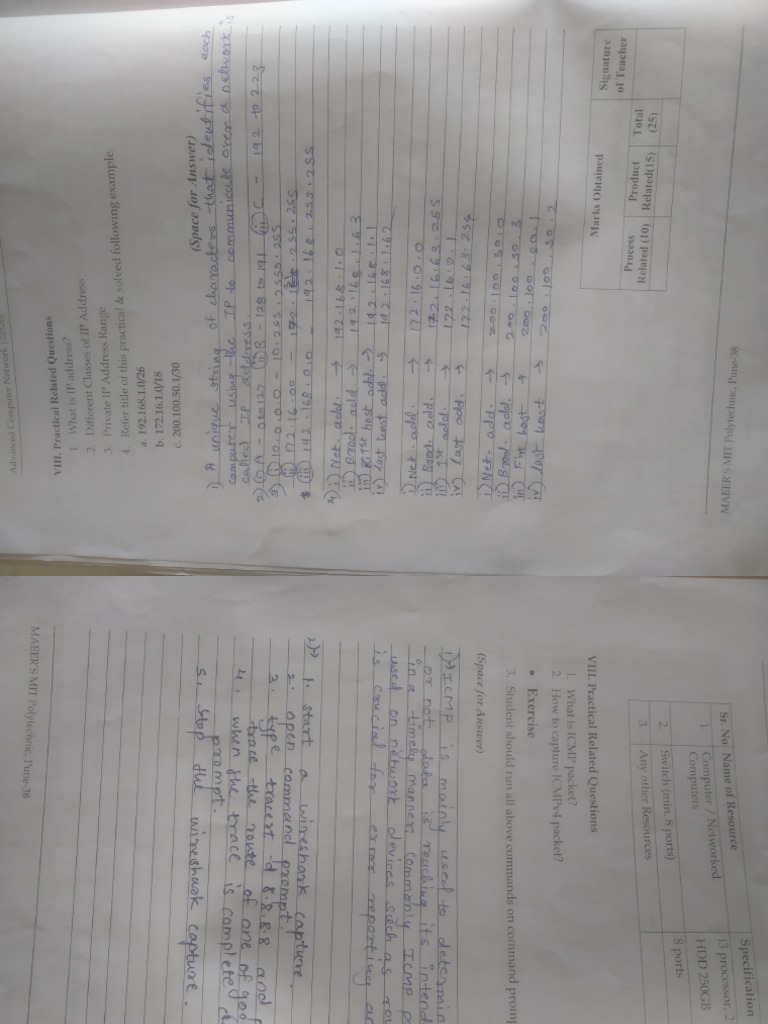 Advanced Computer Network (22520)
VIII. Practical Related Questions
1. What is IP address?
2. Different Classes of IP Address
3. Private IP Address Range
4. Refer title of this practical & solved following example
a. 192.168.1.0/26
b. 172.16.1.0/18
c. 200.100.50.1/30
(Space for Answer)
1) A unique string of characters that identifies each
computer using the IP to communicate over a network is
called IP address.
2) i) A - 0 to 127 ii) B - 128 to 191 iii) C - 192 to 223
3) i) 10.0.0.0 - 10.255.2555.255
ii) 172.16.00 - 172. .255.255
iii) 192.168.0.0 - 192.168.255.255
4) i) Net. add. → 192.168.1.0
ii) Broad. add → 192.168.1.63
iii) 1st host add. → 192.168.1.1
iv) last host add. → 192.168.1.62
i) Net. add. → 172.16.0.0
ii) Broad. add. → 172.16.63.255
iii) 1st add. → 172.16.0.1
iv) last add. → 172.16.63.254
i) Net. add. → 200.100.50.0
ii) Broad. add. → 200.100.50.3
iii) host → 200.100.50.1
iv) last host → 200.100.50.2
Marks Obtained
Signature of Teacher
Process Related (10)
Product Related(15)
Total (25)
MAEER'S MIT Polytechnic, Pune-38
Sr. No Name of Resource Specification
1. Computer / Networked Computers i3 processor, 2
HDD 250GB
2. Switch (min. 8 ports) 8 ports
3. Any other Resources
VIII. Practical Related Questions
1. What is ICMP packet?
2. How to capture ICMPv4 packet?
• Exercise
3. Student should run all above commands on command promp
(Space for Answer)
1) ICMP is mainly used to determin
or not data is reaching its intend
in a timely manner commonly ICMP p
used on network devices such as rou
is crucial for error reporting an
2) 1. start a wireshark capture.
2. open command prompt.
3. type tracert -d 8.8.8.8 and
trace the route of one of goo
4. when the trace is complete
prompt.
5. stop the wireshark capture.
MAEER'S MIT Polytechnic, Pune-38